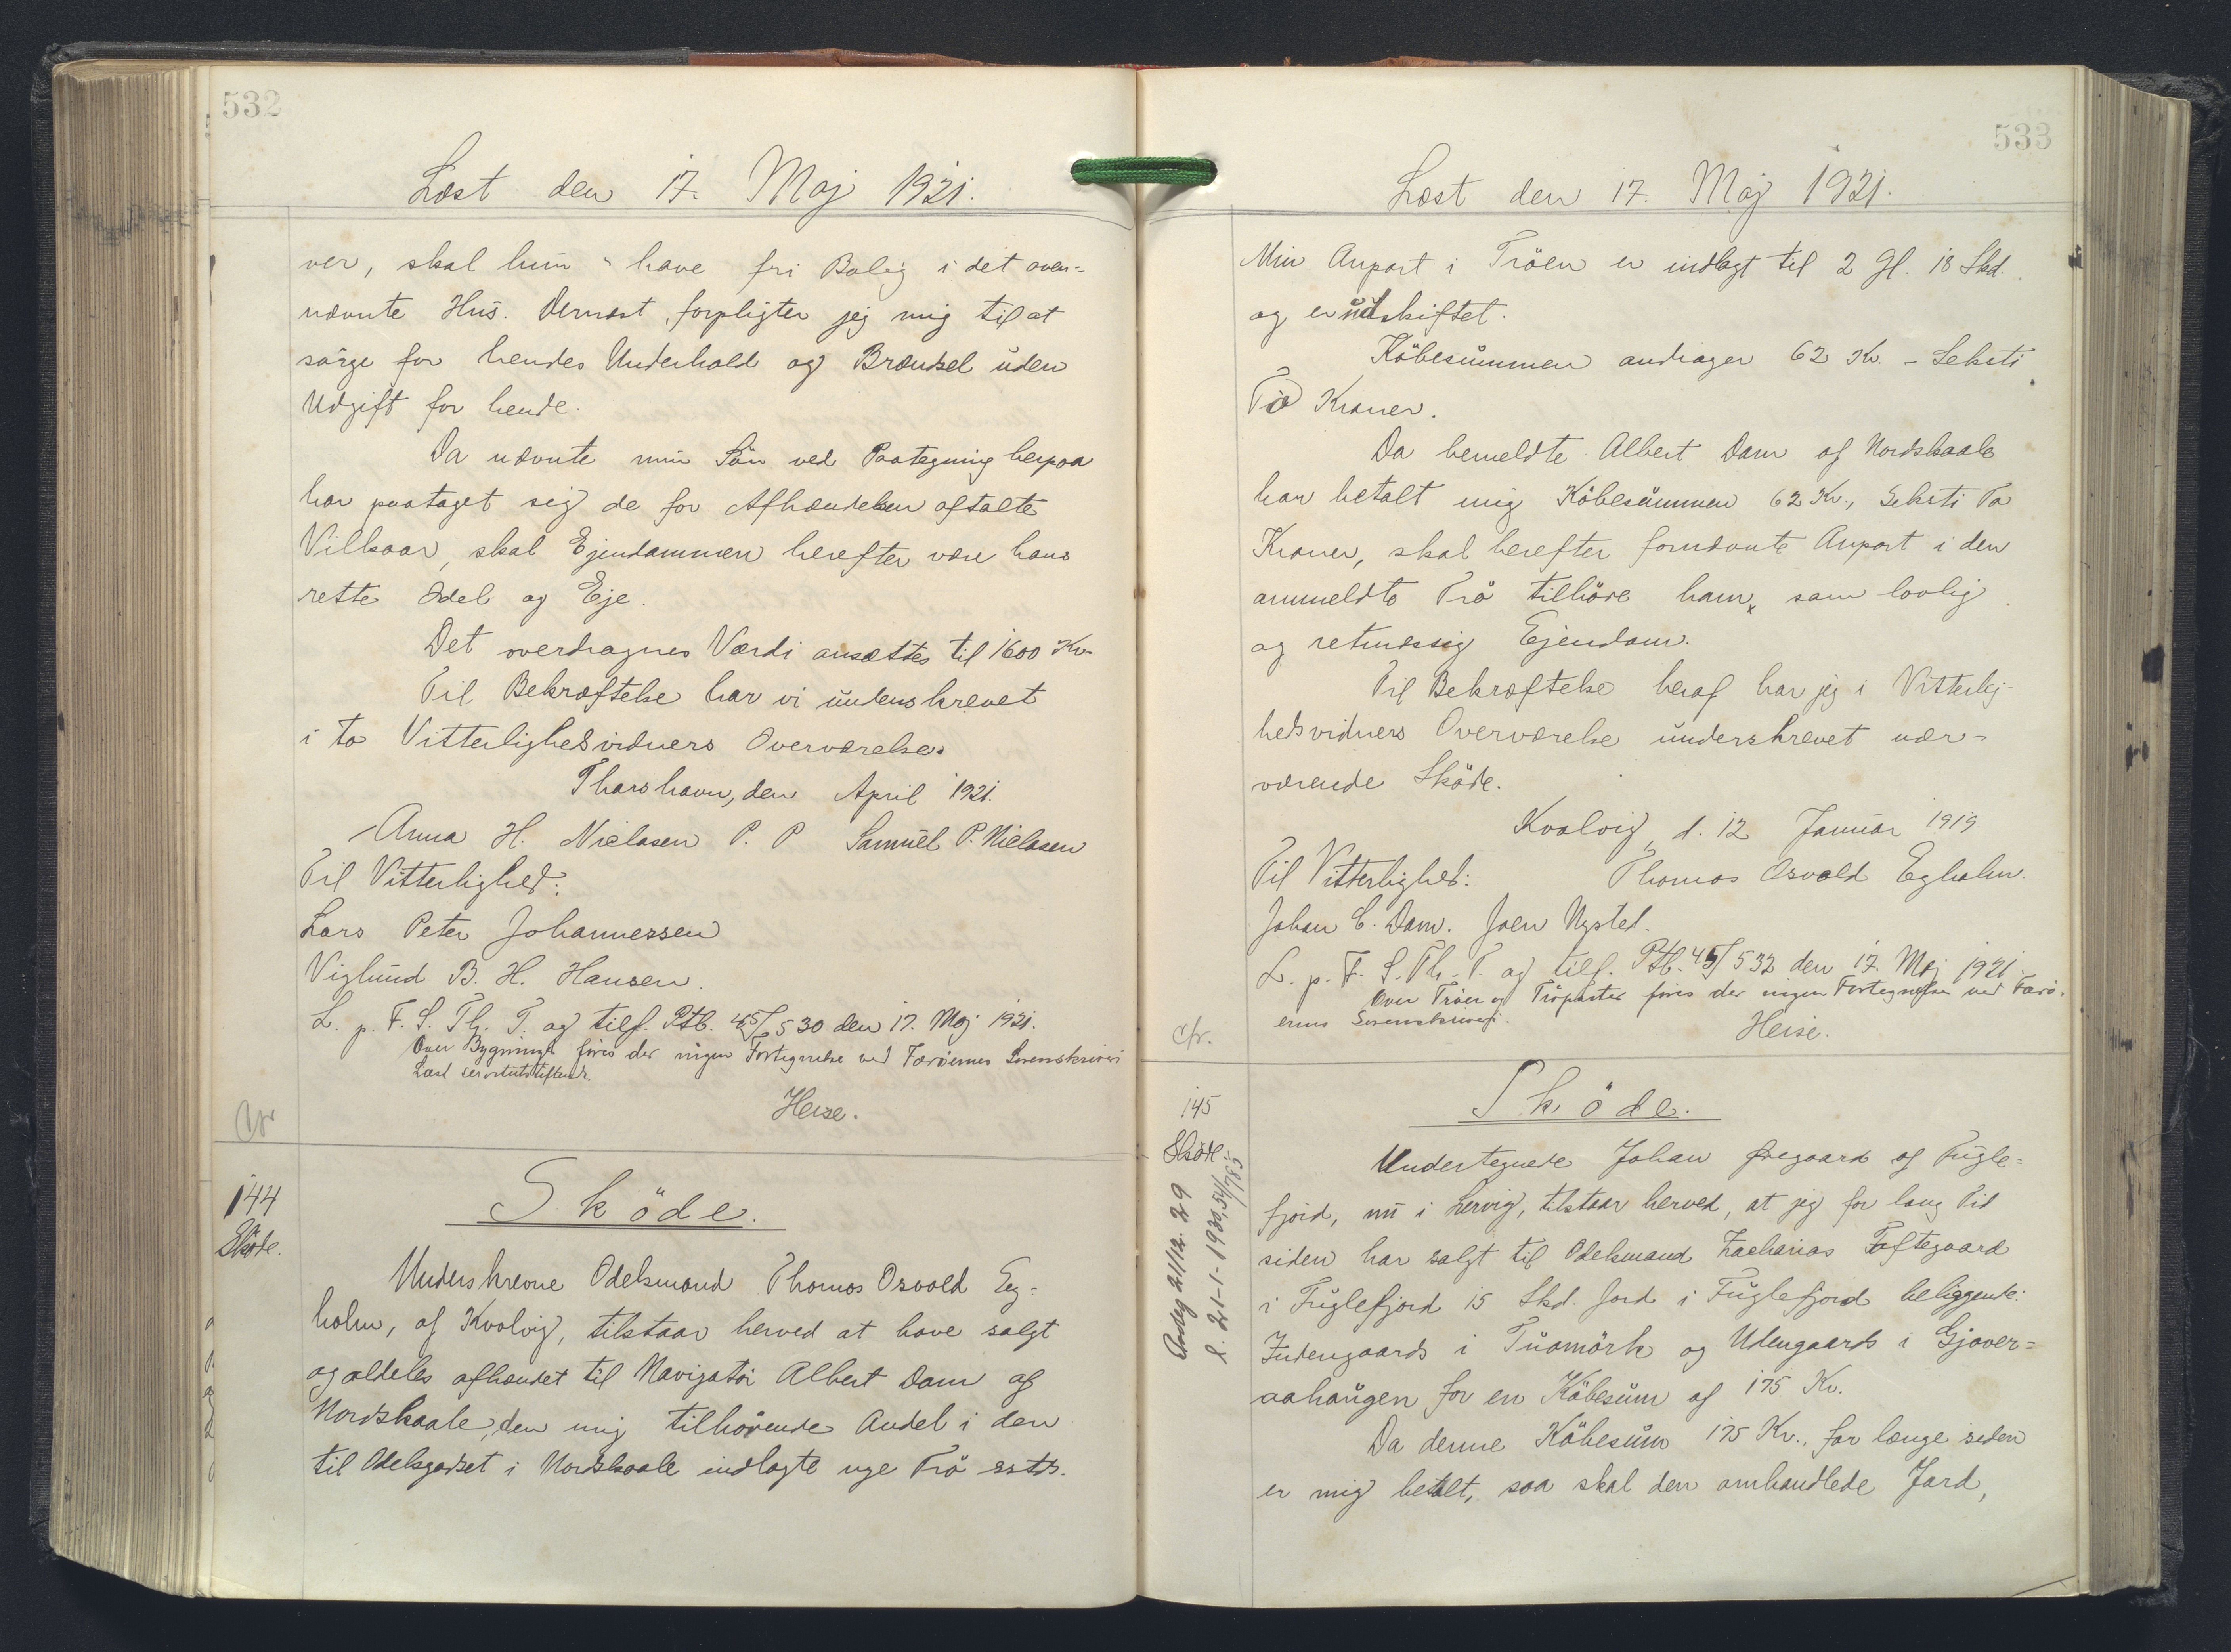 532
Læst den 17. Maj 1921.
ver, skal hun have fri Bolig i det oven-
nævnte Hus. Dernæst forpligter jeg mig til at
sörge for hendes Underhold og Brændsel uden
Udgift for hende.
Da nævnte min Sön ved Paategning herpaa
har paataget sig de for Afhændelsen aftalte
Vilkaar, skal Ejendommen herefter være hans
rette Odel og Eje.
Det overdragnes Værdi ansættes til 1600 Kr.
Til Bekræftelse har vi underskrevet
i to Vitterlighedsvidners Overværelse.
Thorshavn, den April 1921.
Anna H. Nielasen P. P Samuel P. Nielasen
Til Vitterlighed:
Lars Peter Johannessen
Viglund B. H. Hansen.
L. p. F. S. Th. T. og tilf. Ptb. 45/530 den 17. Maj 1921.
Over Bygninger föres der ingen Fortegnelse ved Færöernes Sorenskriveri
Læst servitutstiftende
Heise.
cfr
144
Sköde.
Sköde.
Underskrevne Odelsmand Thomas Osvald Eg-
holm, af Kvalvig, tilstaar herved at have solgt
og aldeles afhændet til Navigatör Albert Dam af
Nordskaale, den mig tilhörende Andel i den
til Odelsgodset i Nordskaale indlagte nye Trö sstds.
533
Læst den 17. Maj 1921.
Min Anpart i Tröen er indlagt til 2 Gl. 18 Skd.
og er udskiftet.
Köbesummen andrager 62 Kr. - Seksti
To Kroner.
Da bemeldte Albert Dam af Nordskaale
har betalt mig Köbesummen 62 Kr., Seksti To
Kroner, skal herefter fornævnte Anpart i den
anmeldte Trö tilhöre ham, som lovlig
og retmæssig Ejendom.
Til Bekræftelse heraf har jeg i Vitterlig-
hedsvidners Overværelse underskrevet nær-
værende Sköde.
Kvalvig, d. 12 Januar 1919
Til Vitterlighed: Thomas Osvald Egholm.
Johan C. Dam. Joen Nysted.
L. p. F. S. Th. T. og tilf. Ptb. 45/532 den 17. Maj 1921.
Over Tröer og Tröparter föres der ingen Fortegnelse ved Færö-
ernes Sorenskriveri.
Heise.
cfr.
145
Sköde
21/12. 29
l. 21-1-1930, 54/785
Sköde.
Undertegnede Johan Öregaard af Fugle-
fjord, nu i Lervig, tilstaar herved, at jeg for lang Tid
siden har solgt til Odelsmand Zacharias Toftegaard
i Fuglefjord 15 Skd. Jord i Fuglefjord beliggende:
Indengaards i Tuamörk og Udengaards i Gjover-
aahaugen for en Köbesum af 175 Kr.
Da denne Köbesum 175 Kr., for længe siden
er mig betalt, saa skal den omhandlede Jord,